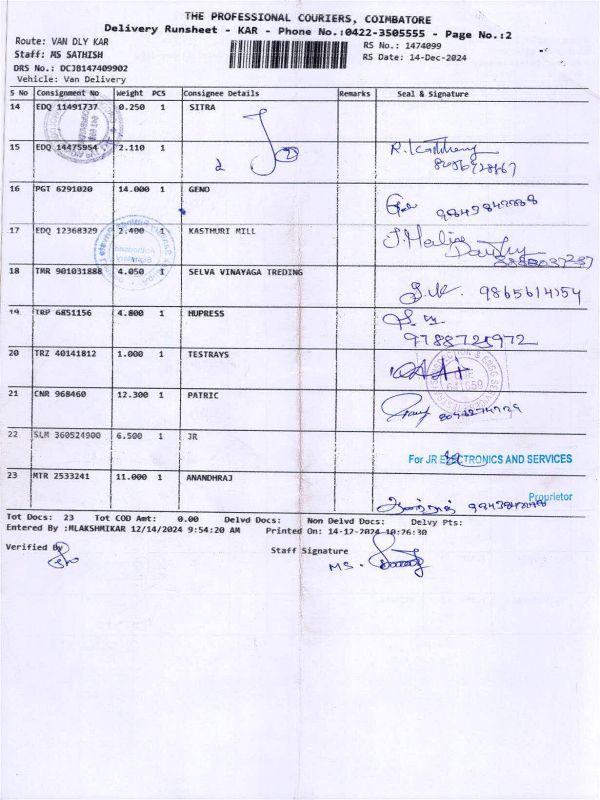 THE PROFESSIONAL COURIERS, COIMBATORE
Delivery Runsheet - KAR - Phone No.:0422-3505555 - Page No.:2
Route: VAN DLY KAR
RS No.: 1474099
Staff: MS SATHISH
RS Date: 14-Dec-2024
DRS No.: DCJB147409902
Vehicle: Van Delivery
S No Consignment No Weight PCS Consignee Details Remarks Seal & Signature
14 EDQ 11491737 0.250 1 SITRA
15 EDQ 14475954 2.110 1
2
16 PGT 6291020 14.000 1 GENO
17 EDQ 12368329 2.400 1 KASTHURI MILL
18 TMR 901031888 4.050 1 SELVA VINAYAGA TREDING
19 TRP 6851156 4.800 1 HUPRESS
9788728972
20 TRZ 40141812 1.000 1 TESTRAYS
21 CNR 968460 12.300 1 PATRIC
22 SLM 360524900 6.500 1 JR
For JR ELECTRONICS AND SERVICES
23 MTR 2533241 11.000 1 ANANDHRAJ
Proprietor
Tot Docs: 23 Tot COD Amt: 0.00 Delvd Docs: Non Delvd Docs: Delvy Pts:
Entered By :MLAKSHMIKAR 12/14/2024 9:54:20 AM Printed On: 14-12-2024 10:26:30
Verified By
Staff Signature
MS.